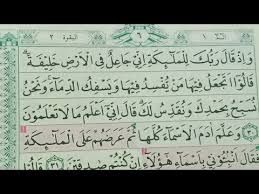 البقرة ٢ ٦ الم ١
وَإِذْ قَالَ رَبُّكَ لِلْمَلَٰٓئِكَةِ إِنِّي جَاعِلٌ فِي الْأَرْضِ خَلِيفَةً
قَالُوٓا أَتَجْعَلُ فِيهَا مَن يُفْسِدُ فِيهَا وَيَسْفِكُ الدِّمَآءَ وَنَحْنُ
نُسَبِّحُ بِحَمْدِكَ وَنُقَدِّسُ لَكَ قَالَ إِنِّيٓ أَعْلَمُ مَا لَا تَعْلَمُونَ
٣٠ وَعَلَّمَ آدَمَ الْأَسْمَآءَ كُلَّهَا ثُمَّ عَرَضَهُمْ عَلَى الْمَلَٰٓئِكَةِ
فَقَالَ أَنۢبِـُٔونِي بِأَسْمَآءِ هَٰٓؤُلَآءِ إِن كُنتُمْ صَٰدِقِينَ ٣١ قَالُوا